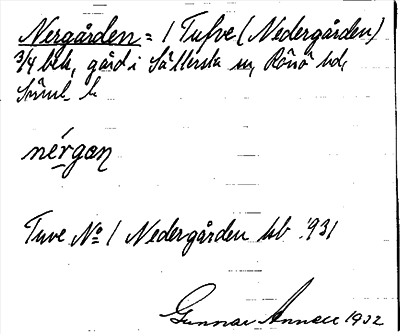 Nergården = 1 Tufve (Nedergården)
3/4 btk, gård i Sättersta sn, Rönö hd,
Söml. l.
nérgaṇ
Tuve No 1 Nedergården hb 1931
Gunnar 1932